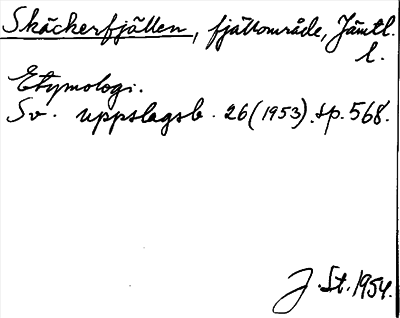 Skäckerfjällen, fjällområde, Jämtl.
l.
Etymologi.
Sv. uppslagsb. 26(1953).sp.568.
J.St.1954.